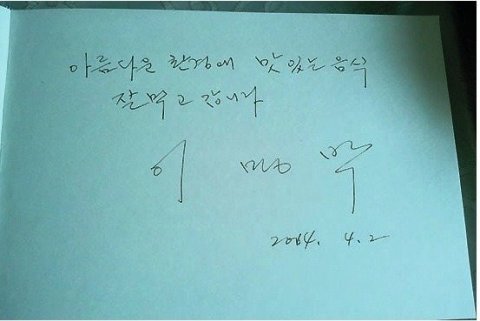 아름다운 환경에 맛있는 음식
잘먹고 갑니다
이 명박
2014. 4. 2